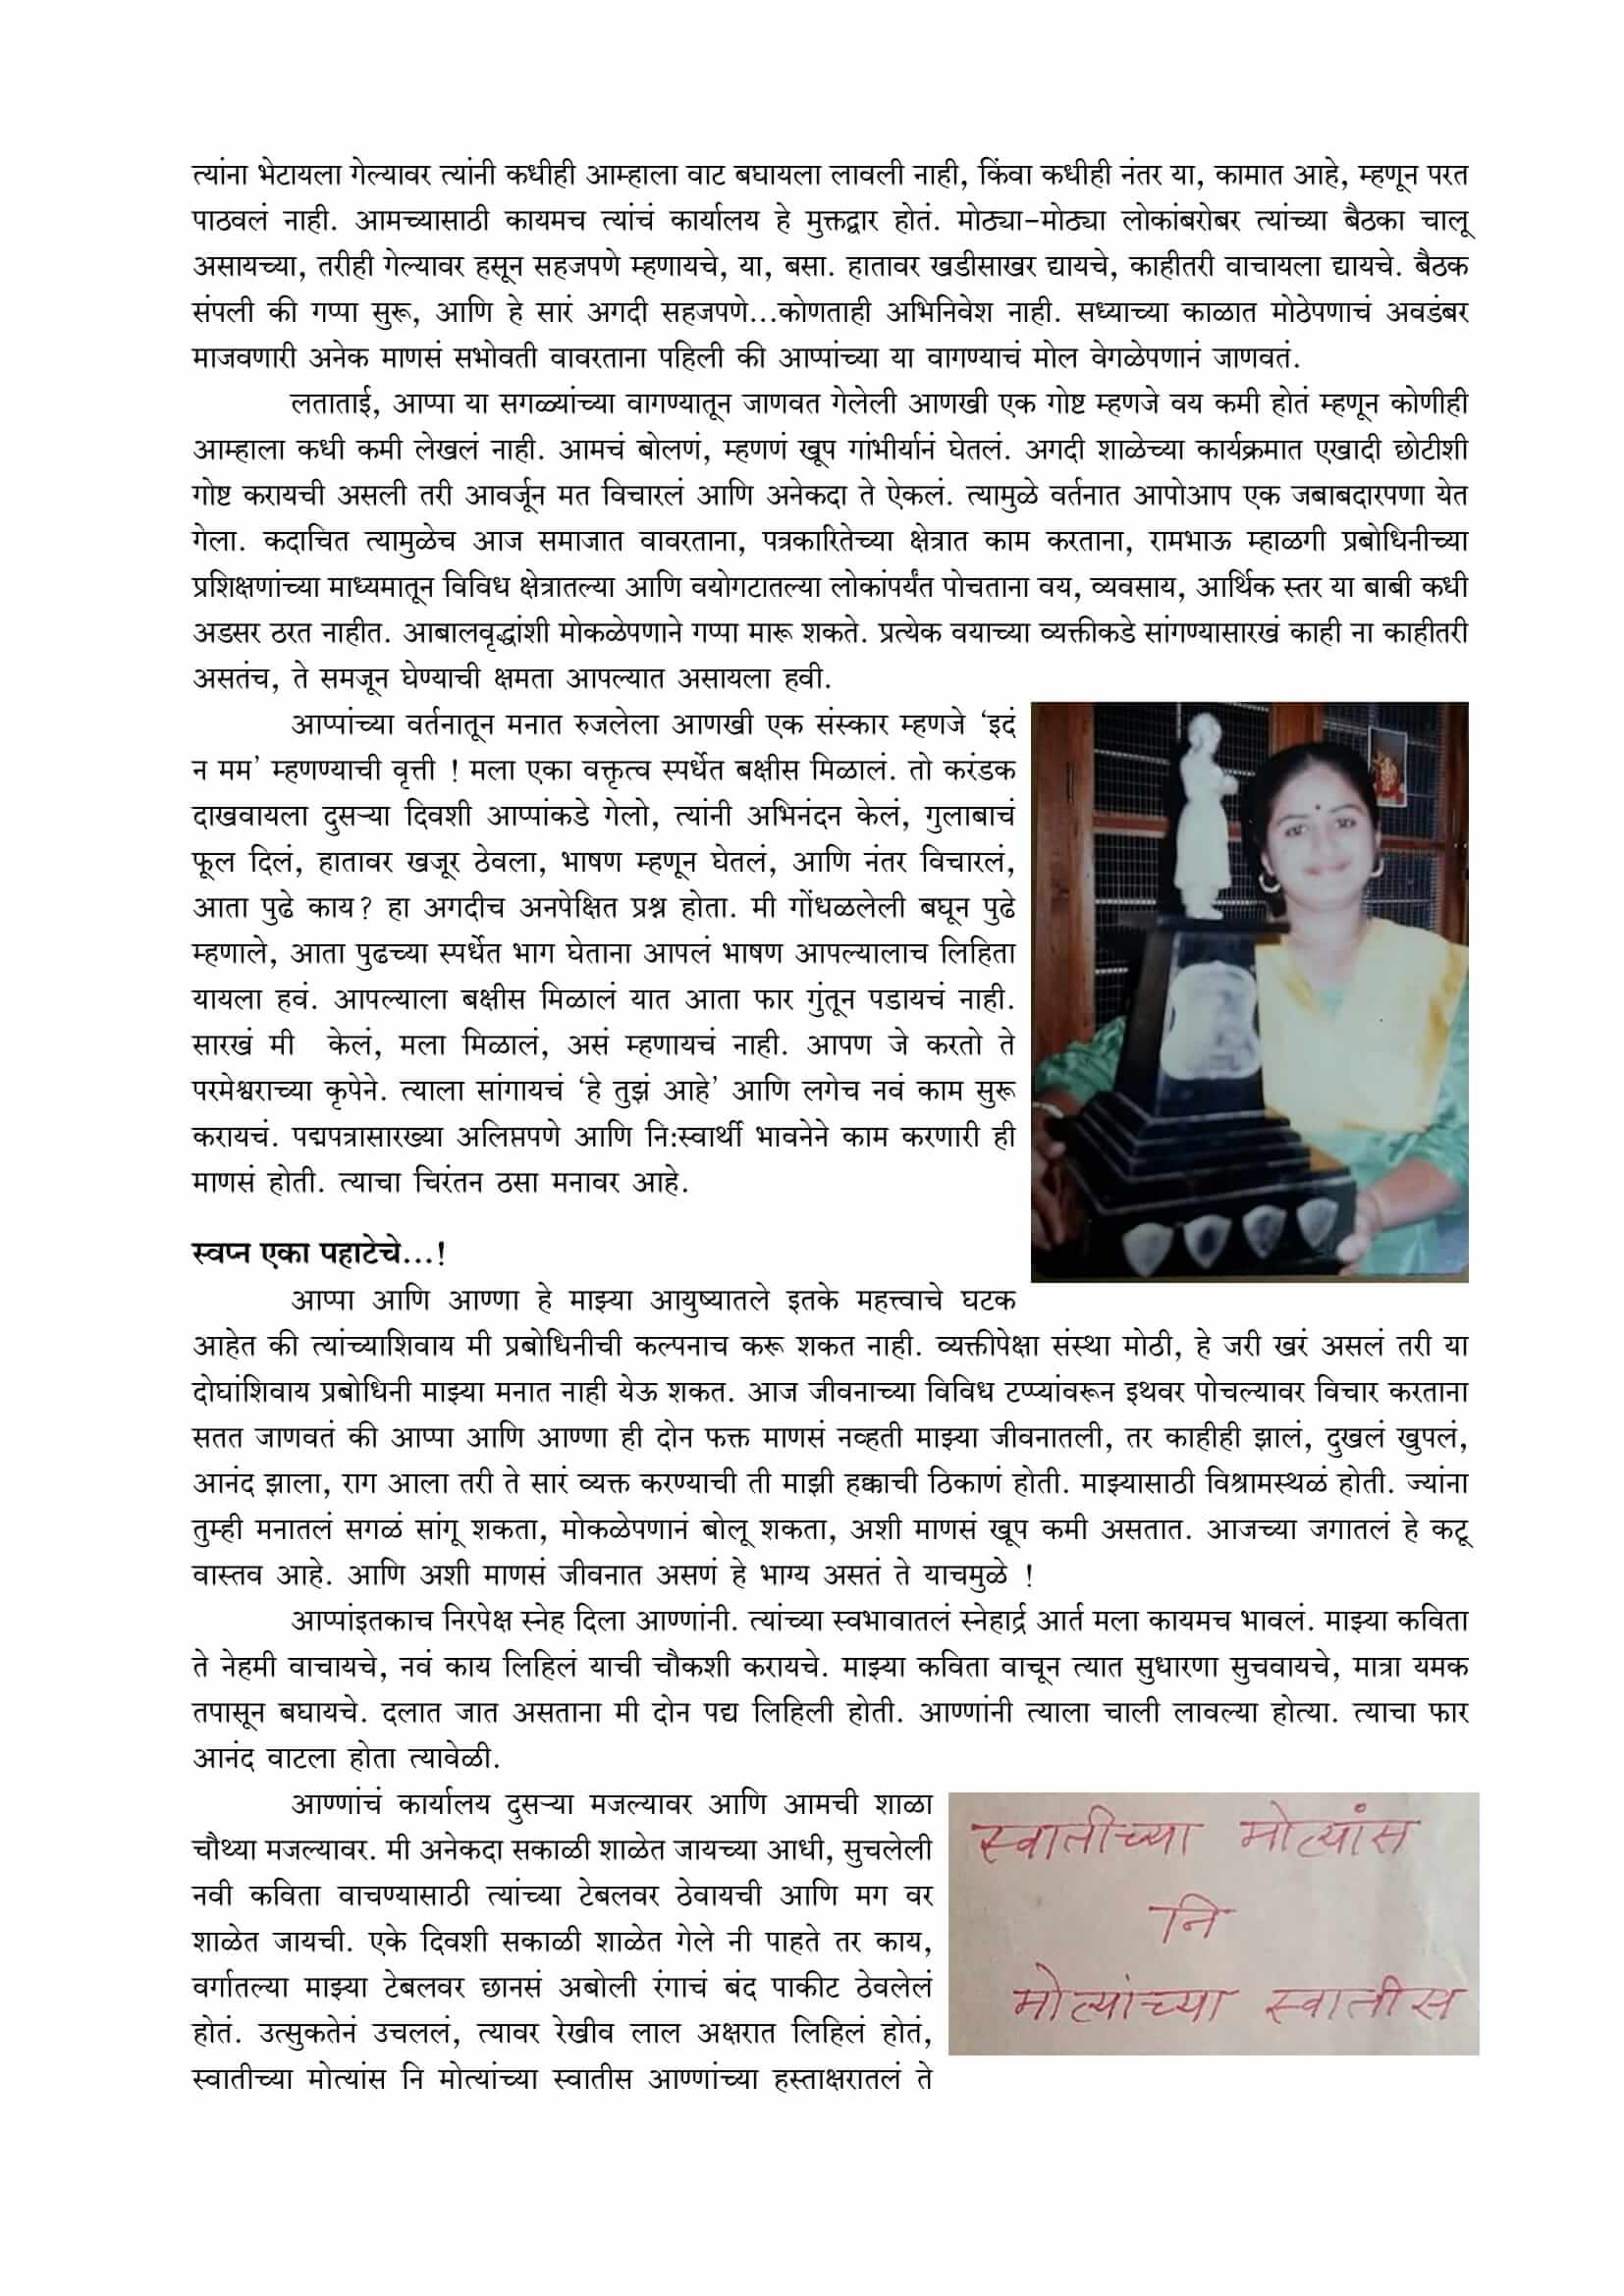 त्यांना भेटायला गेल्यावर त्यांनी कधीही आम्हाला वाट बघायला लावली नाही, किंवा कधीही नंतर या, कामात आहे, म्हणून परत
पाठवलं नाही. आमच्यासाठी कायमच त्यांचं कार्यालय हे मुक्तद्वार होतं. मोठ्या-मोठ्या लोकांबरोबर त्यांच्या बैठका चालू
असायच्या, तरीही गेल्यावर हसून सहजपणे म्हणायचे, या, बसा. हातावर खडीसाखर द्यायचे, काहीतरी वाचायला द्यायचे. बैठक
संपली की गप्पा सुरू, आणि हे सारं अगदी सहजपणे...कोणताही अभिनिवेश नाही. सध्याच्या काळात मोठेपणाचं अवडंबर
माजवणारी अनेक माणसं सभोवती वावरताना पहिली की आप्पांच्या या वागण्याचं मोल वेगळेपणानं जाणवतं.
लताताई, आप्पा या सगळ्यांच्या वागण्यातून जाणवत गेलेली आणखी एक गोष्ट म्हणजे वय कमी होतं म्हणून कोणीही
आम्हाला कधी कमी लेखलं नाही. आमचं बोलणं, म्हणणं खूप गांभीर्यानं घेतलं. अगदी शाळेच्या कार्यक्रमात एखादी छोटीशी
गोष्ट करायची असली तरी आवर्जून मत विचारलं आणि अनेकदा ते ऐकलं. त्यामुळे वर्तनात आपोआप एक जबाबदारपणा येत
गेला. कदाचित त्यामुळेच आज समाजात वावरताना, पत्रकारितेच्या क्षेत्रात काम करताना, रामभाऊ म्हाळगी प्रबोधिनीच्या
प्रशिक्षणांच्या माध्यमातून विविध क्षेत्रातल्या आणि वयोगटातल्या लोकांपर्यंत पोचताना वय, व्यवसाय, आर्थिक स्तर या बाबी कधी
अडसर ठरत नाहीत. आबालवृद्धांशी मोकळेपणाने गप्पा मारू शकते. प्रत्येक वयाच्या व्यक्तीकडे सांगण्यासारखं काही ना काहीतरी
असतंच, ते समजून घेण्याची क्षमता आपल्यात असायला हवी.
आप्पांच्या वर्तनातून मनात रुजलेला आणखी एक संस्कार म्हणजे ‘इदं
न मम’ म्हणण्याची वृत्ती ! मला एका वक्तृत्व स्पर्धेत बक्षीस मिळालं. तो करंडक
दाखवायला दुसऱ्या दिवशी आप्पांकडे गेलो, त्यांनी अभिनंदन केलं, गुलाबाचं
फूल दिलं, हातावर खजूर ठेवला, भाषण म्हणून घेतलं, आणि नंतर विचारलं,
आता पुढे काय? हा अगदीच अनपेक्षित प्रश्न होता. मी गोंधळलेली बघून पुढे
म्हणाले, आता पुढच्या स्पर्धेत भाग घेताना आपलं भाषण आपल्यालाच लिहिता
यायला हवं. आपल्याला बक्षीस मिळालं यात आता फार गुंतून पडायचं नाही.
सारखं मी केलं, मला मिळालं, असं म्हणायचं नाही. आपण जे करतो ते
परमेश्वराच्या कृपेने. त्याला सांगायचं ‘हे तुझं आहे’ आणि लगेच नवं काम सुरू
करायचं. पद्मपत्रासारख्या अलिप्तपणे आणि नि:स्वार्थी भावनेने काम करणारी ही
माणसं होती. त्याचा चिरंतन ठसा मनावर आहे.
स्वप्न एका पहाटेचे...!
आप्पा आणि आण्णा हे माझ्या आयुष्यातले इतके महत्त्वाचे घटक
आहेत की त्यांच्याशिवाय मी प्रबोधिनीची कल्पनाच करू शकत नाही. व्यक्तीपेक्षा संस्था मोठी, हे जरी खरं असलं तरी या
दोघांशिवाय प्रबोधिनी माझ्या मनात नाही येऊ शकत. आज जीवनाच्या विविध टप्प्यांवरून इथवर पोचल्यावर विचार करताना
सतत जाणवतं की आप्पा आणि आण्णा ही दोन फक्त माणसं नव्हती माझ्या जीवनातली, तर काहीही झालं, दुखलं खुपलं,
आनंद झाला, राग आला तरी ते सारं व्यक्त करण्याची ती माझी हक्काची ठिकाणं होती. माझ्यासाठी विश्रामस्थळं होती. ज्यांना
तुम्ही मनातलं सगळं सांगू शकता, मोकळेपणानं बोलू शकता, अशी माणसं खूप कमी असतात. आजच्या जगातलं हे कटू
वास्तव आहे. आणि अशी माणसं जीवनात असणं हे भाग्य असतं ते याचमुळे !
आप्पांइतकाच निरपेक्ष स्नेह दिला आण्णांनी. त्यांच्या स्वभावातलं स्नेहार्द्र आर्त मला कायमच भावलं. माझ्या कविता
ते नेहमी वाचायचे, नवं काय लिहिलं याची चौकशी करायचे. माझ्या कविता वाचून त्यात सुधारणा सुचवायचे, मात्रा यमक
तपासून बघायचे. दलात जात असताना मी दोन पद्य लिहिली होती. आण्णांनी त्याला चाली लावल्या होत्या. त्याचा फार
आनंद वाटला होता त्यावेळी.
आण्णांचं कार्यालय दुसऱ्या मजल्यावर आणि आमची शाळा
चौथ्या मजल्यावर. मी अनेकदा सकाळी शाळेत जायच्या आधी, सुचलेली
नवी कविता वाचण्यासाठी त्यांच्या टेबलवर ठेवायची आणि मग वर
शाळेत जायची. एके दिवशी सकाळी शाळेत गेले नी पाहते तर काय,
वर्गातल्या माझ्या टेबलवर छानसं अबोली रंगाचं बंद पाकीट ठेवलेलं
होतं. उत्सुकतेनं उचललं, त्यावर रेखीव लाल अक्षरात लिहिलं होतं,
स्वातीच्या मोत्यांस नि मोत्यांच्या स्वातीस आण्णांच्या हस्ताक्षरातलं ते
स्वातीच्या मोत्यांस
नि
मोत्यांच्या स्वातीस